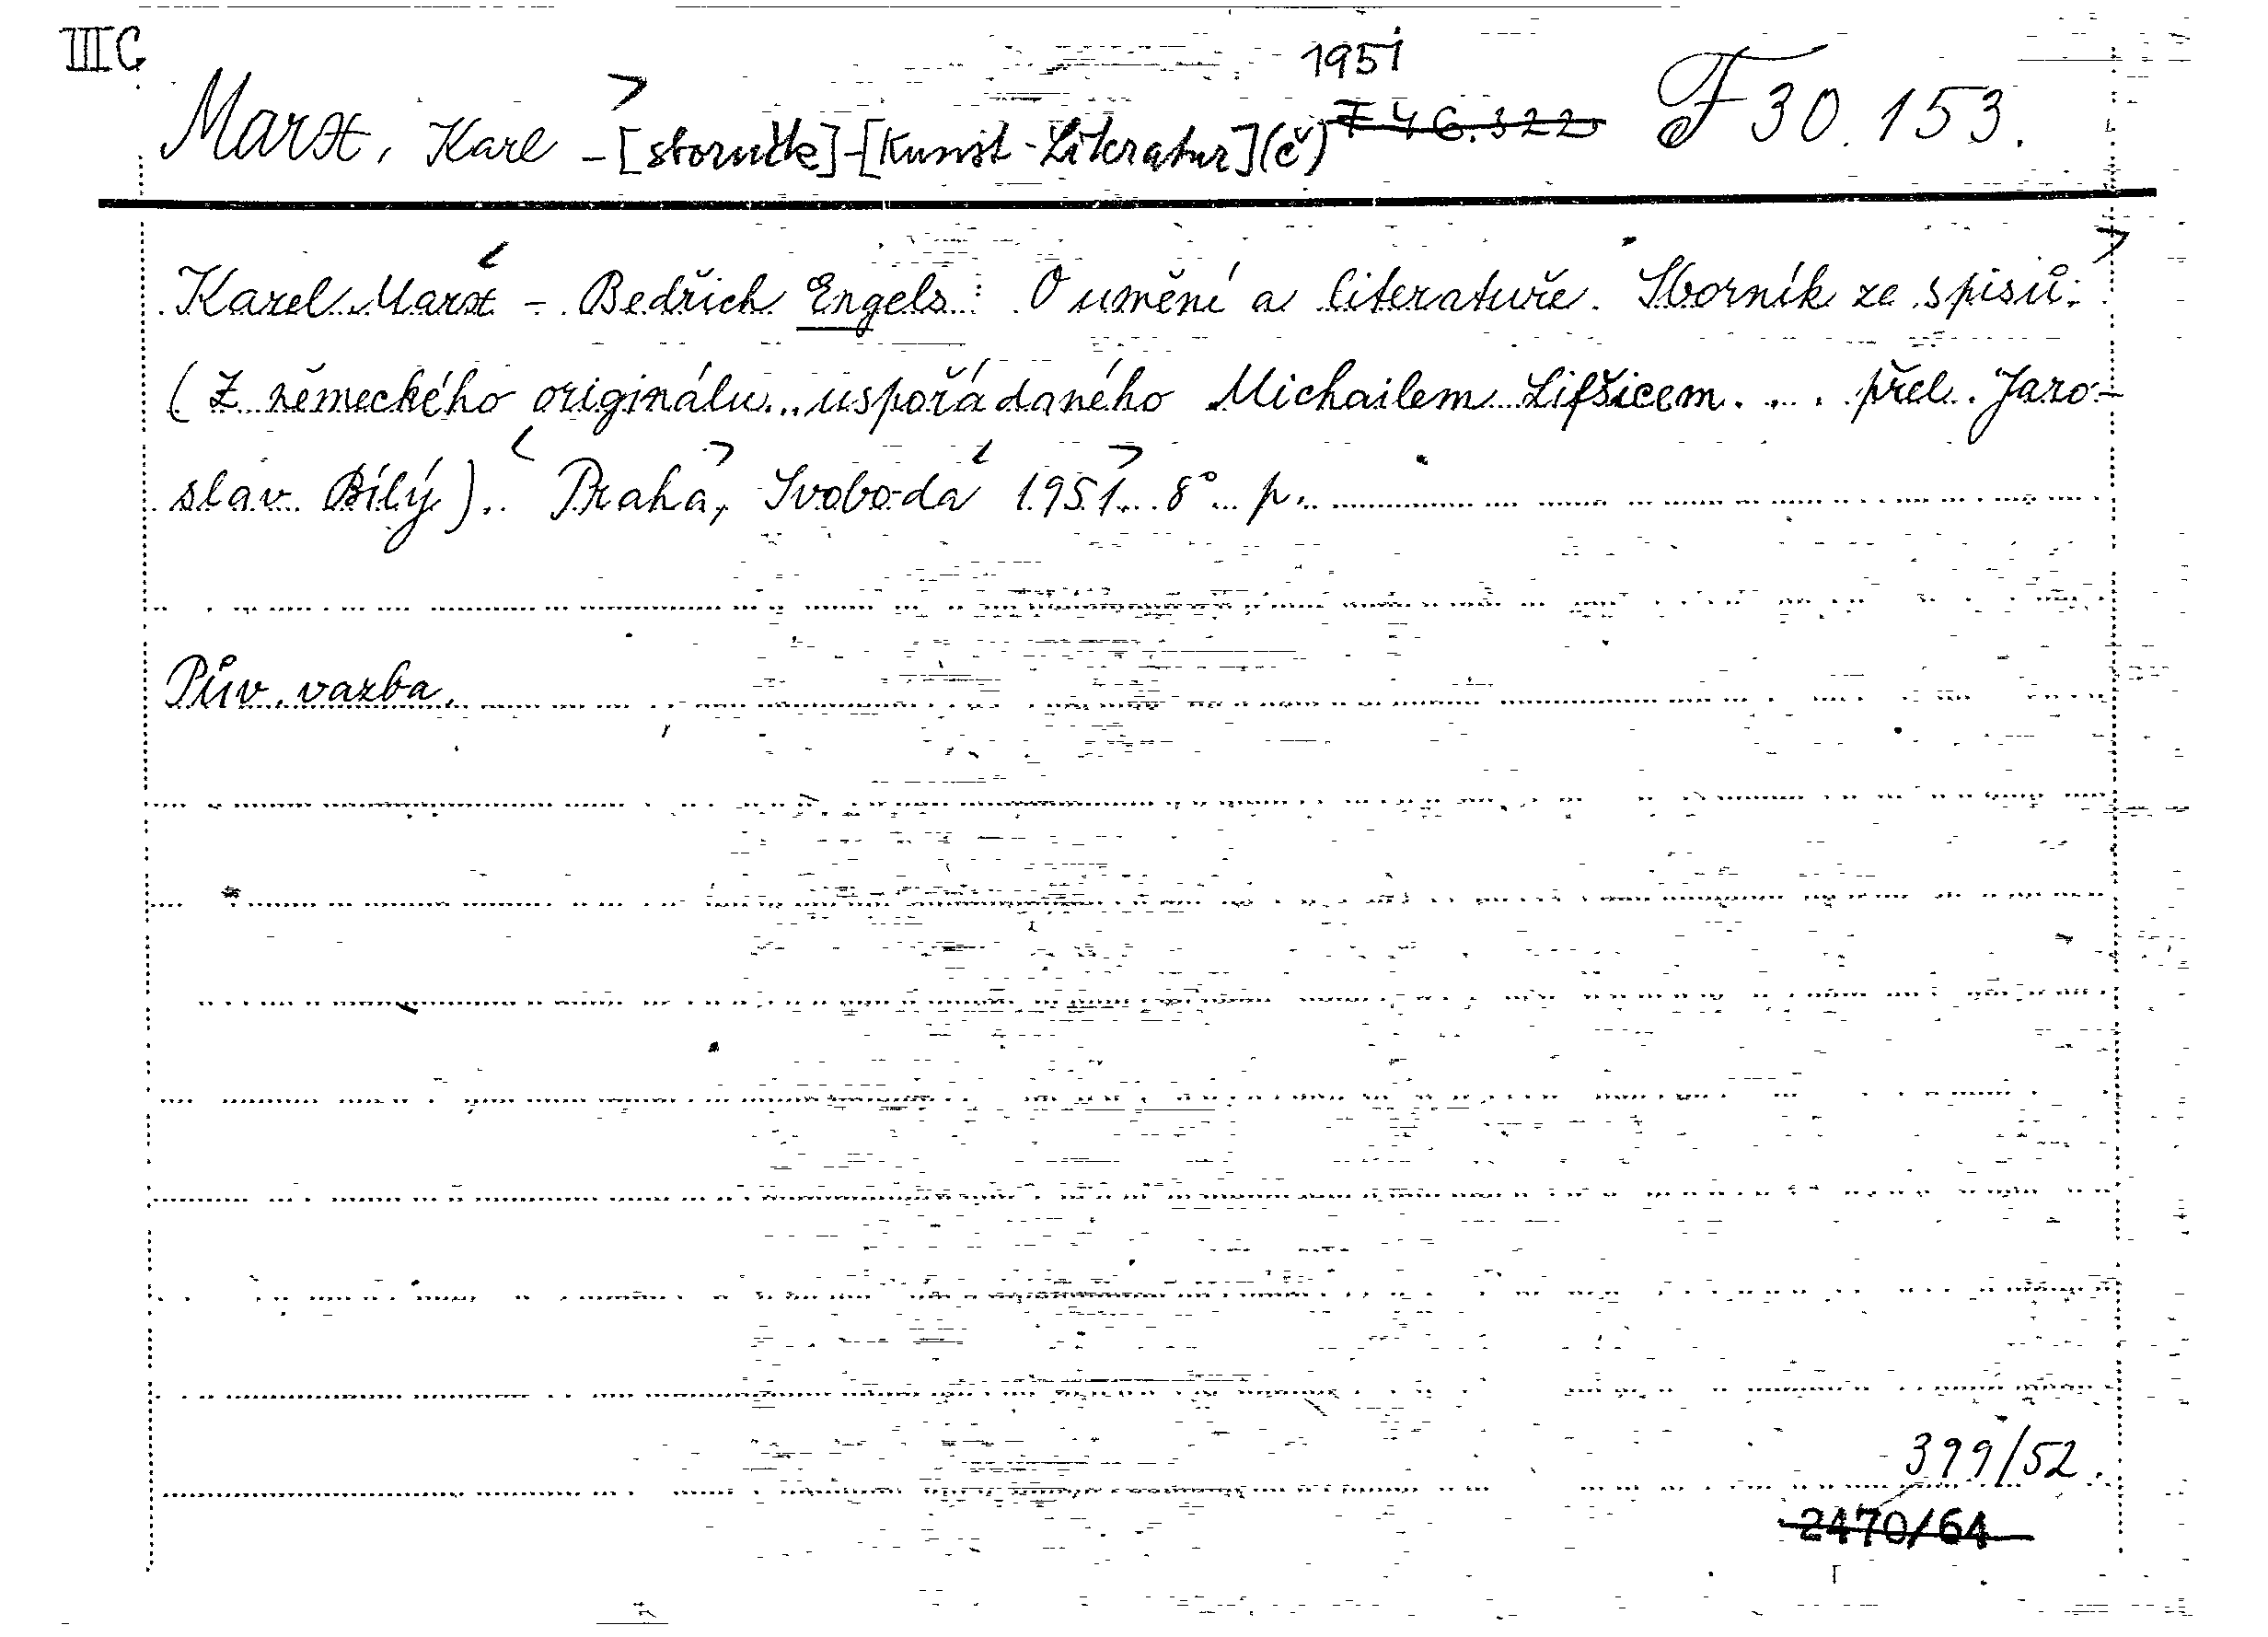 III C
1951
Marx, Karl - [sborník] - [Kunst - Literatur] (č) F 46.322 F 30.153.
Karel Marx - Bedřich Engels: O umění a literatuře. Sborník ze spisů.
(Z německého originálu.. uspořádaného Michailem Lifšicem.... přel. Jaro-
slav Bílý). Praha, Svoboda 1951. 8° p.
Pův. vazba.
399/52.
2470/64